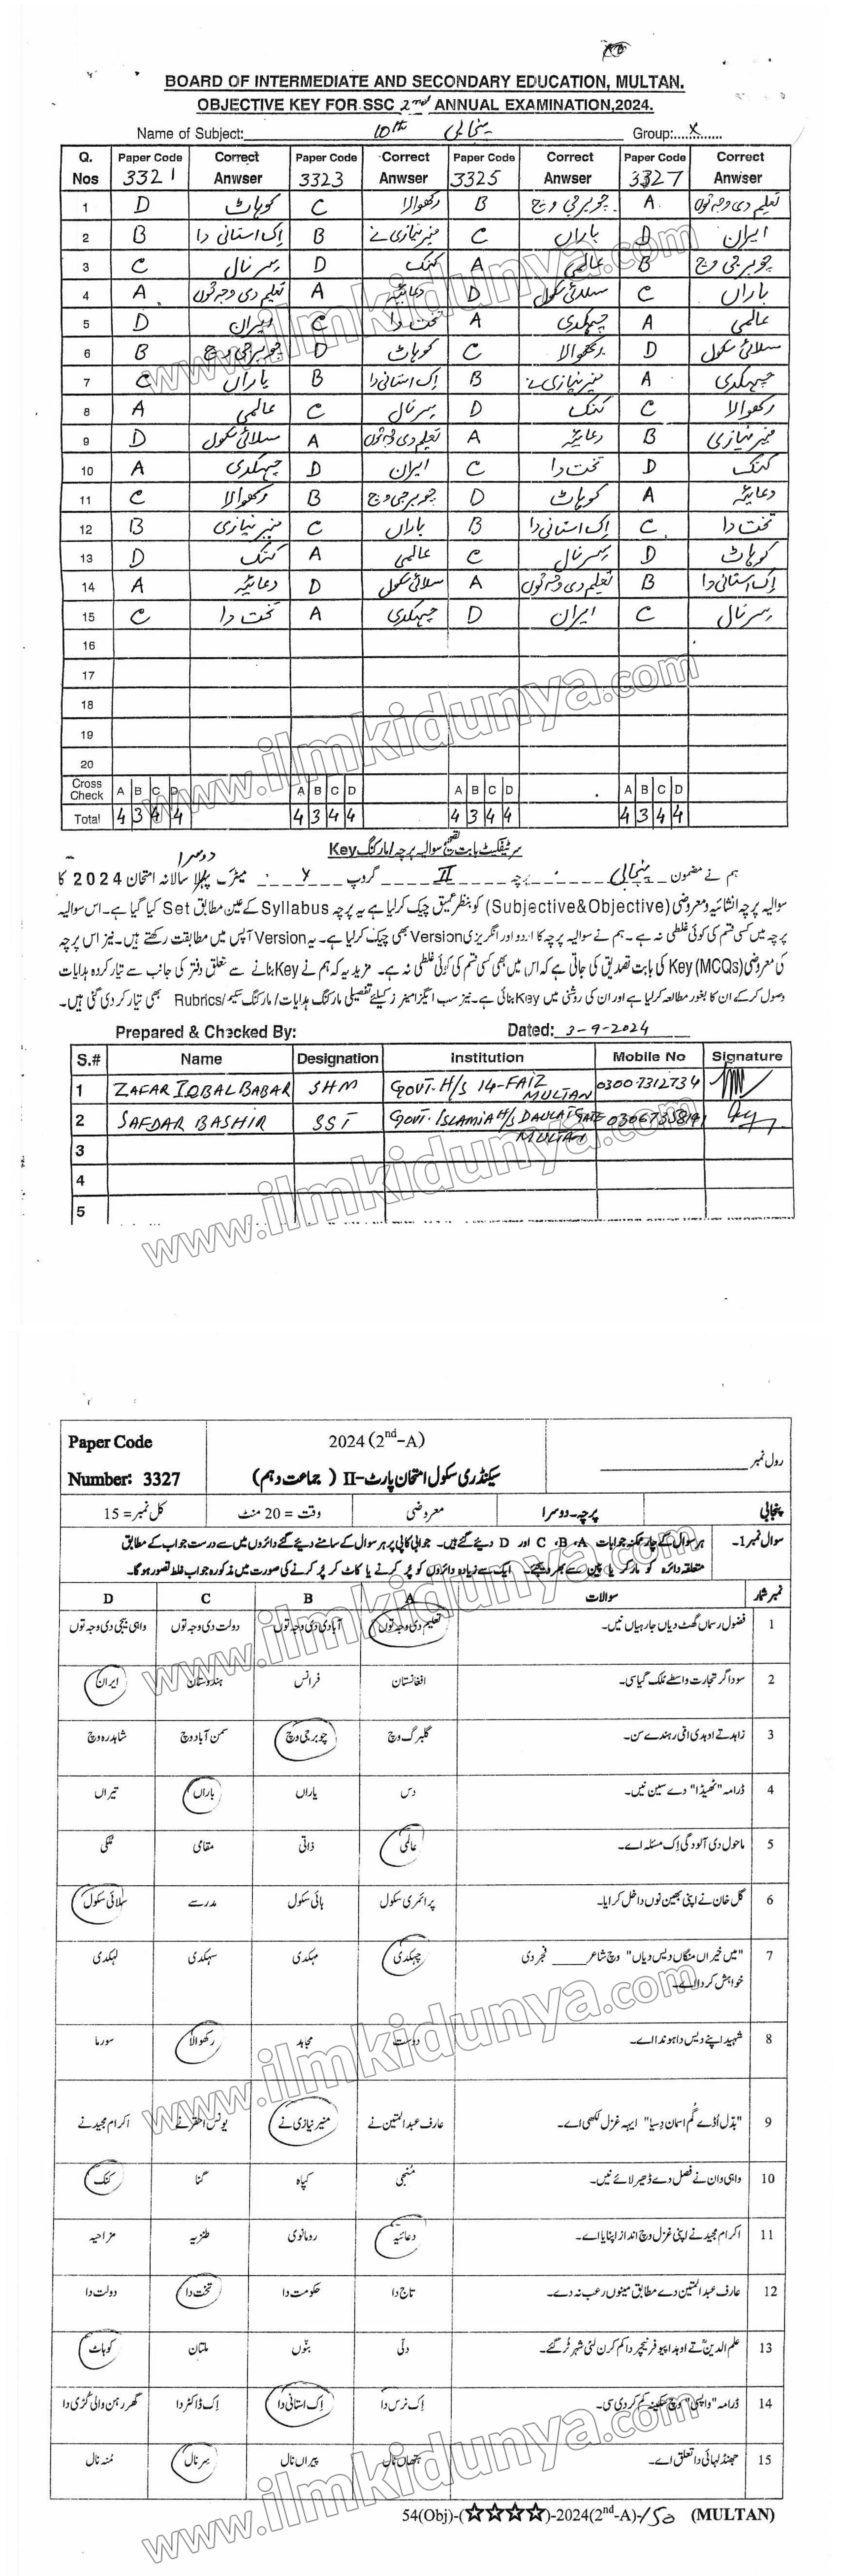 BOARD OF INTERMEDIATE AND SECONDARY EDUCATION, MULTAN.
OBJECTIVE KEY FOR SSC 2nd ANNUAL EXAMINATION,2024.
Name of Subject: 10th پنجابی Group:....x......
Q. Nos Paper Code 3321 Correct Anwser Paper Code 3323 Correct Anwser Paper Code 3325 Correct Anwser Paper Code 3327 Correct Anwser
1 D کوہاٹ C رکھوالا B چوبرجی وچ A تعلیم دی وجہ توں
2 B اِک استانی دا B منیر نیازی نے C باراں D ایران
3 C سر نال D کنک A عالمی B چوبرجی وچ
4 A تعلیم دی وجہ توں A دعائیہ D سلائی سکول C باراں
5 D ایران C تخت دا A چہکدی A عالمی
6 B چوبرجی وچ D کوہاٹ C رکھوالا D سلائی سکول
7 C باراں B اِک استانی دا B منیر نیازی نے A چہکدی
8 A عالمی C سر نال D کنک C رکھوالا
9 D سلائی سکول A تعلیم دی وجہ توں A دعائیہ B منیر نیازی
10 A چہکدی D ایران C تخت دا D کنک
11 C رکھوالا B چوبرجی وچ D کوہاٹ A دعائیہ
12 B منیر نیازی C باراں B اِک استانی دا C تخت دا
13 D کنک A عالمی C سر نال D کوہاٹ
14 A دعائیہ D سلائی سکول A تعلیم دی وجہ توں B اِک استانی دا
15 C تخت دا A چہکدی D ایران C سر نال
16
17
18
19
20
Cross Check A B C D A B C D A B C D A B C D
Total 4 3 4 4 4 3 4 4 4 3 4 4 4 3 4 4
سرٹیفکیٹ بابت تصحیح سوالیہ پرچہ/مارکنگ Key
دوسرا
ہم نے مضمون پنجابی پرچہ II گروپ x میٹرک پہلا سالانہ امتحان 2024 کا
سوالیہ پرچہ انشائیہ و معروضی (Subjective&Objective) کو بنظر عمیق چیک کر لیا ہے یہ پرچہ Syllabus کے عین مطابق Set کیا گیا ہے۔ اس سوالیہ
پرچہ میں کسی قسم کی کوئی غلطی نہ ہے۔ ہم نے سوالیہ پرچہ کا اردو اور انگریزی Version بھی چیک کر لیا ہے۔ یہ Version آپس میں مطابقت رکھتے ہیں۔ نیز اس پرچہ
کی معروضی (MCQs) Key کی بابت تصدیق کی جاتی ہے کہ اس میں بھی کسی قسم کی کوئی غلطی نہ ہے۔ مزید یہ کہ ہم نے Key بنانے سے متعلق دفتر کی جانب سے تیار کردہ ہدایات
وصول کر کے ان کا بغور مطالعہ کر لیا ہے اور ان کی روشنی میں Key بنائی ہے۔ نیز سب ایگزامینرز کیلئے تفصیلی مارکنگ ہدایات/مارکنگ سکیم/Rubrics بھی تیار کر دی گئی ہیں۔
Prepared & Checked By: Dated: 3-9-2024
S.# Name Designation Institution Mobile No Signature
1 ZAFAR IQBAL BABAR SHM GOVT. H/S 14-FAIZ MULTAN 03007312734
2 SAFDAR BASHIR SST GOVT. ISLAMIA H/S DAULAT GATE MULTAN
3
4
5
Paper Code
Number: 3327
2024 (2nd-A)
سیکنڈری سکول امتحان پارٹ-II (جماعت دہم)
رول نمبر
پنجابی پرچہ-دوسرا معروضی وقت = 20 منٹ کل نمبر = 15
سوال نمبر 1- ہر سوال کے چار ممکنہ جوابات A، B، C اور D دیئے گئے ہیں۔ جوابی کاپی پر ہر سوال کے سامنے دیئے گئے دائروں میں سے درست جواب کے مطابق
متعلقہ دائرہ کو مارکر یا پین سے بھر دیجئے۔ ایک سے زیادہ دائروں کو پُر کرنے یا کاٹ کر پُر کرنے کی صورت میں مذکورہ جواب غلط تصور ہو گا۔
نمبر شمار سوالات A B C D
1 فضول رسماں گھٹ دیاں جا رہیاں نیں۔ تعلیم دی وجہ توں آبادی دی وجہ توں دولت دی وجہ توں واہی بیجی دی وجہ توں
2 سوداگر تجارت واسطے ملک گیا سی۔ افغانستان فرانس ہندوستان ایران
3 زاہد تے اوہدی امی رہندے سن۔ گلبرگ وچ چوبرجی وچ سمن آباد وچ شاہدرہ وچ
4 ڈرامہ "ٹھیڈا" دے سین نیں۔ دس یاراں باراں تیراں
5 ماحول دی آلودگی اِک مسئلہ اے۔ عالمی ذاتی مقامی ملکی
6 گل خان نے اپنی بھین نوں داخل کرایا۔ پرائمری سکول ہائی سکول مدرسے سلائی سکول
7 "میں خیراں منگاں دیس دیاں" وچ شاعر ____ فجر دی چہکدی مہکدی سہکدی لہکدی
خواہش کردا اے۔
8 شہید اپنے دیس دا ہوندا اے۔ دوست مجاہد رکھوالا سورما
9 "بدّل اُڈے تے گُم اسمان دِسیا" ایہہ غزل لکھی اے۔ عارف عبدالمتین نے منیر نیازی نے یونس احقر نے اکرام مجید نے
10 واہی وان نے فصل دے ڈھیر لائے نیں۔ مُنجی کپاہ گنا کنک
11 اکرام مجید نے اپنی غزل وچ انداز اپنایا اے۔ دعائیہ رومانوی طنزیہ مزاحیہ
12 عارف عبدالمتین دے مطابق مینوں رعب نہ دے۔ تاج دا حکومت دا تخت دا دولت دا
13 علم الدینؒ تے اوہدا پیو فرنیچر دا کم کرن لئی شہر ٹُر گئے۔ دلّی بنّوں ملتان کوہاٹ
14 ڈرامہ "واپسی" وچ سکینہ کم کردی سی۔ اِک نرس دا اِک استانی دا اِک ڈاکٹر دا گھر رہن والی کُڑی دا
15 جھنڈ لہائی دا تعلق اے۔ ہتھاں نال پیراں نال سر نال مُنہ نال
54(Obj)-(☆☆☆☆)-2024(2nd-A)-150 (MULTAN)
www.ilmkidunya.com
www.ilmkidunya.com
www.ilmkidunya.com
www.ilmkidunya.com
www.ilmkidunya.com
www.ilmkidunya.com